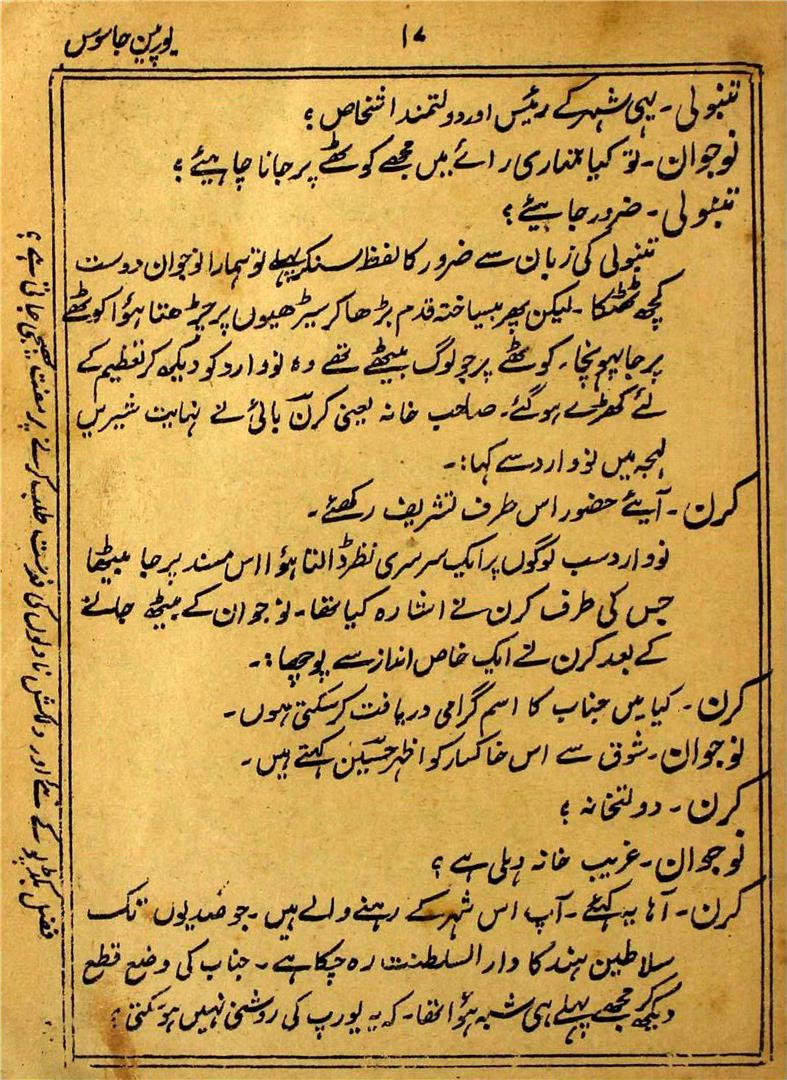 یورپین جاسوس
۱۷
تنبولی۔ یہی شہر کے رئیس اور دولتمند اشخاص ؟
نوجوان۔ تو کیا تمہاری رائے میں مجھے کوٹھے پر جانا چاہیئے ؟
تنبولی۔ ضرور جاہیئے ؟
تنبولی کی زبان سے ضرور کا لفظ سنکر پہلے تو ہمارا نوجوان دوست
کچھ ٹھٹکا۔ لیکن پھر بیساختہ قدم بڑھا کر سیڑھیوں پر چڑھتا ہؤا کوٹھے
پر جا پہونچا۔ کوٹھے پر جو لوگ بیٹھے تھے وہ نو وارد کو دیکھ کر تعظیم کے
لئے کھڑے ہو گئے۔ صاحب خانہ یعنی کرن بائی نے نہایت شیریں
لہجہ میں نو وارد سے کہا:۔
کرن۔ آیئے حضور اس طرف تشریف رکھئے۔
نو وارد سب لوگوں پر ایک سرسری نظر ڈالتا ہؤا اس مسند پر جا بیٹھا
جس کی طرف کرن نے اشارہ کیا تھا۔ نوجوان کے بیٹھ جانے
کے بعد کرن نے ایک خاص انداز سے پوچھا:۔
کرن۔ کیا میں جناب کا اسم گرامی دریافت کر سکتی ہوں۔
نوجوان۔ شوق سے اس خاکسار کو اظہر حسین کہتے ہیں۔
کرن۔ دولتخانہ ؟
نوجوان۔ غریب خانہ دہلی ہے ؟
کرن۔ آہا یہ کہئے۔ آپ اس شہر کے رہنے والے ہیں۔ جو صدیوں تک
سلاطین ہند کا دار السلطنت رہ چکا ہے۔ جناب کی وضع قطع
دیکھ کر مجھے پہلے ہی شبہ ہؤا تھا۔ کہ یہ یورپ کی روشنی نہیں ہو سکتی ؟
فضل بکڈپو کے نئے اور دلکش ناولوں کی فہرست طلب کرنے پر مفت بھیجی جاتی ہے ؟